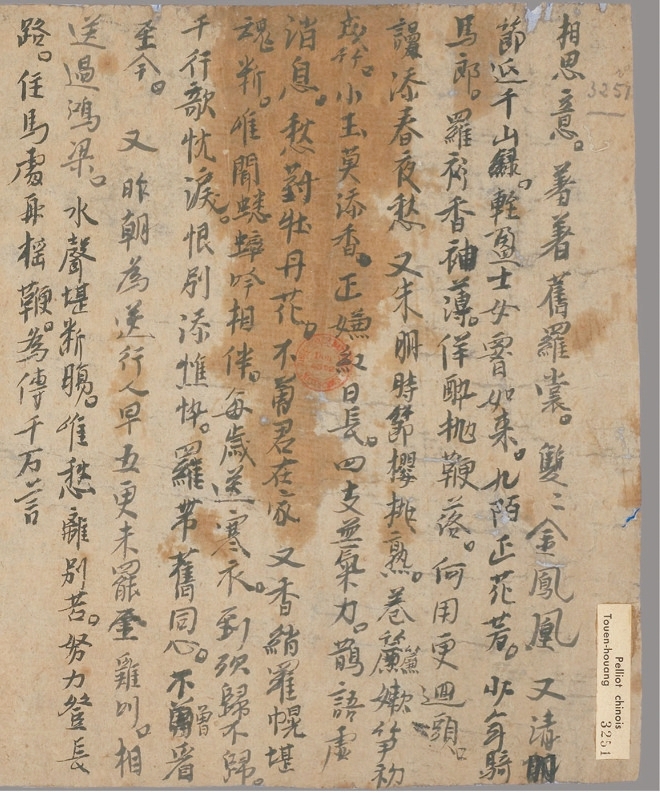 3251
相思意。著著舊羅裳。雙〻金鳳凰 又 清明
節近千山綠。輕盈士女如束。九陌正花芳。少年騎
馬郎。羅衫香袖薄。佯醉抛鞭落。何用更迴頭。
謾添春夜愁 又 朱明時節櫻桃熟。卷簾簾嫩笋初
成竹。小玉莫添香。正嫌紅日長。四支無氣力。鵲語虛
消息。愁對牡丹花。不曾君在家 又 香綃羅幌堪
魂断。唯聞蟋蟀吟相伴。每歲送寒衣。到頭歸不歸。
千行歌忱淚。恨別添憔悴。羅帶舊同心。不曾曾看
至今。 又 昨朝為送行人早 五更未罷金雞叫。相
送過鴻梁。水聲堪断腸。唯愁離別苦。努力登長
路。住馬處再搖鞭。為傳千万言
Pelliot chinois
Touen-houang 3251